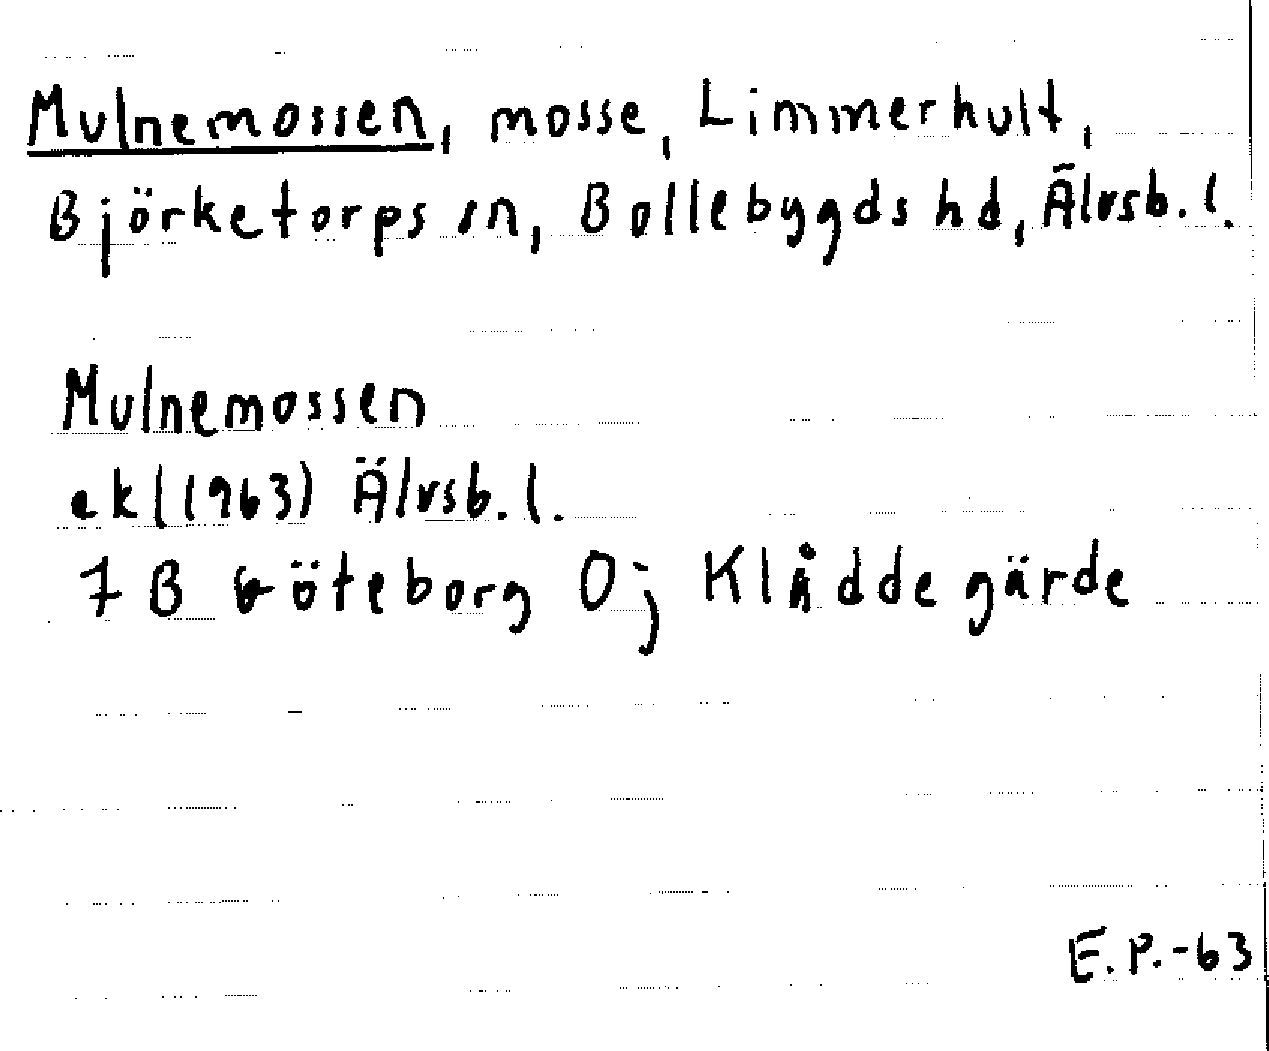 Mulnemossen, mosse, Limmerhult,
Björketorps sn, Bollebygds hd, Älvsb. l.
Mulnemossen
ekl (1963) Älvsb. l.
7 B Göteborg O; Klåddegärde
E.P.-63